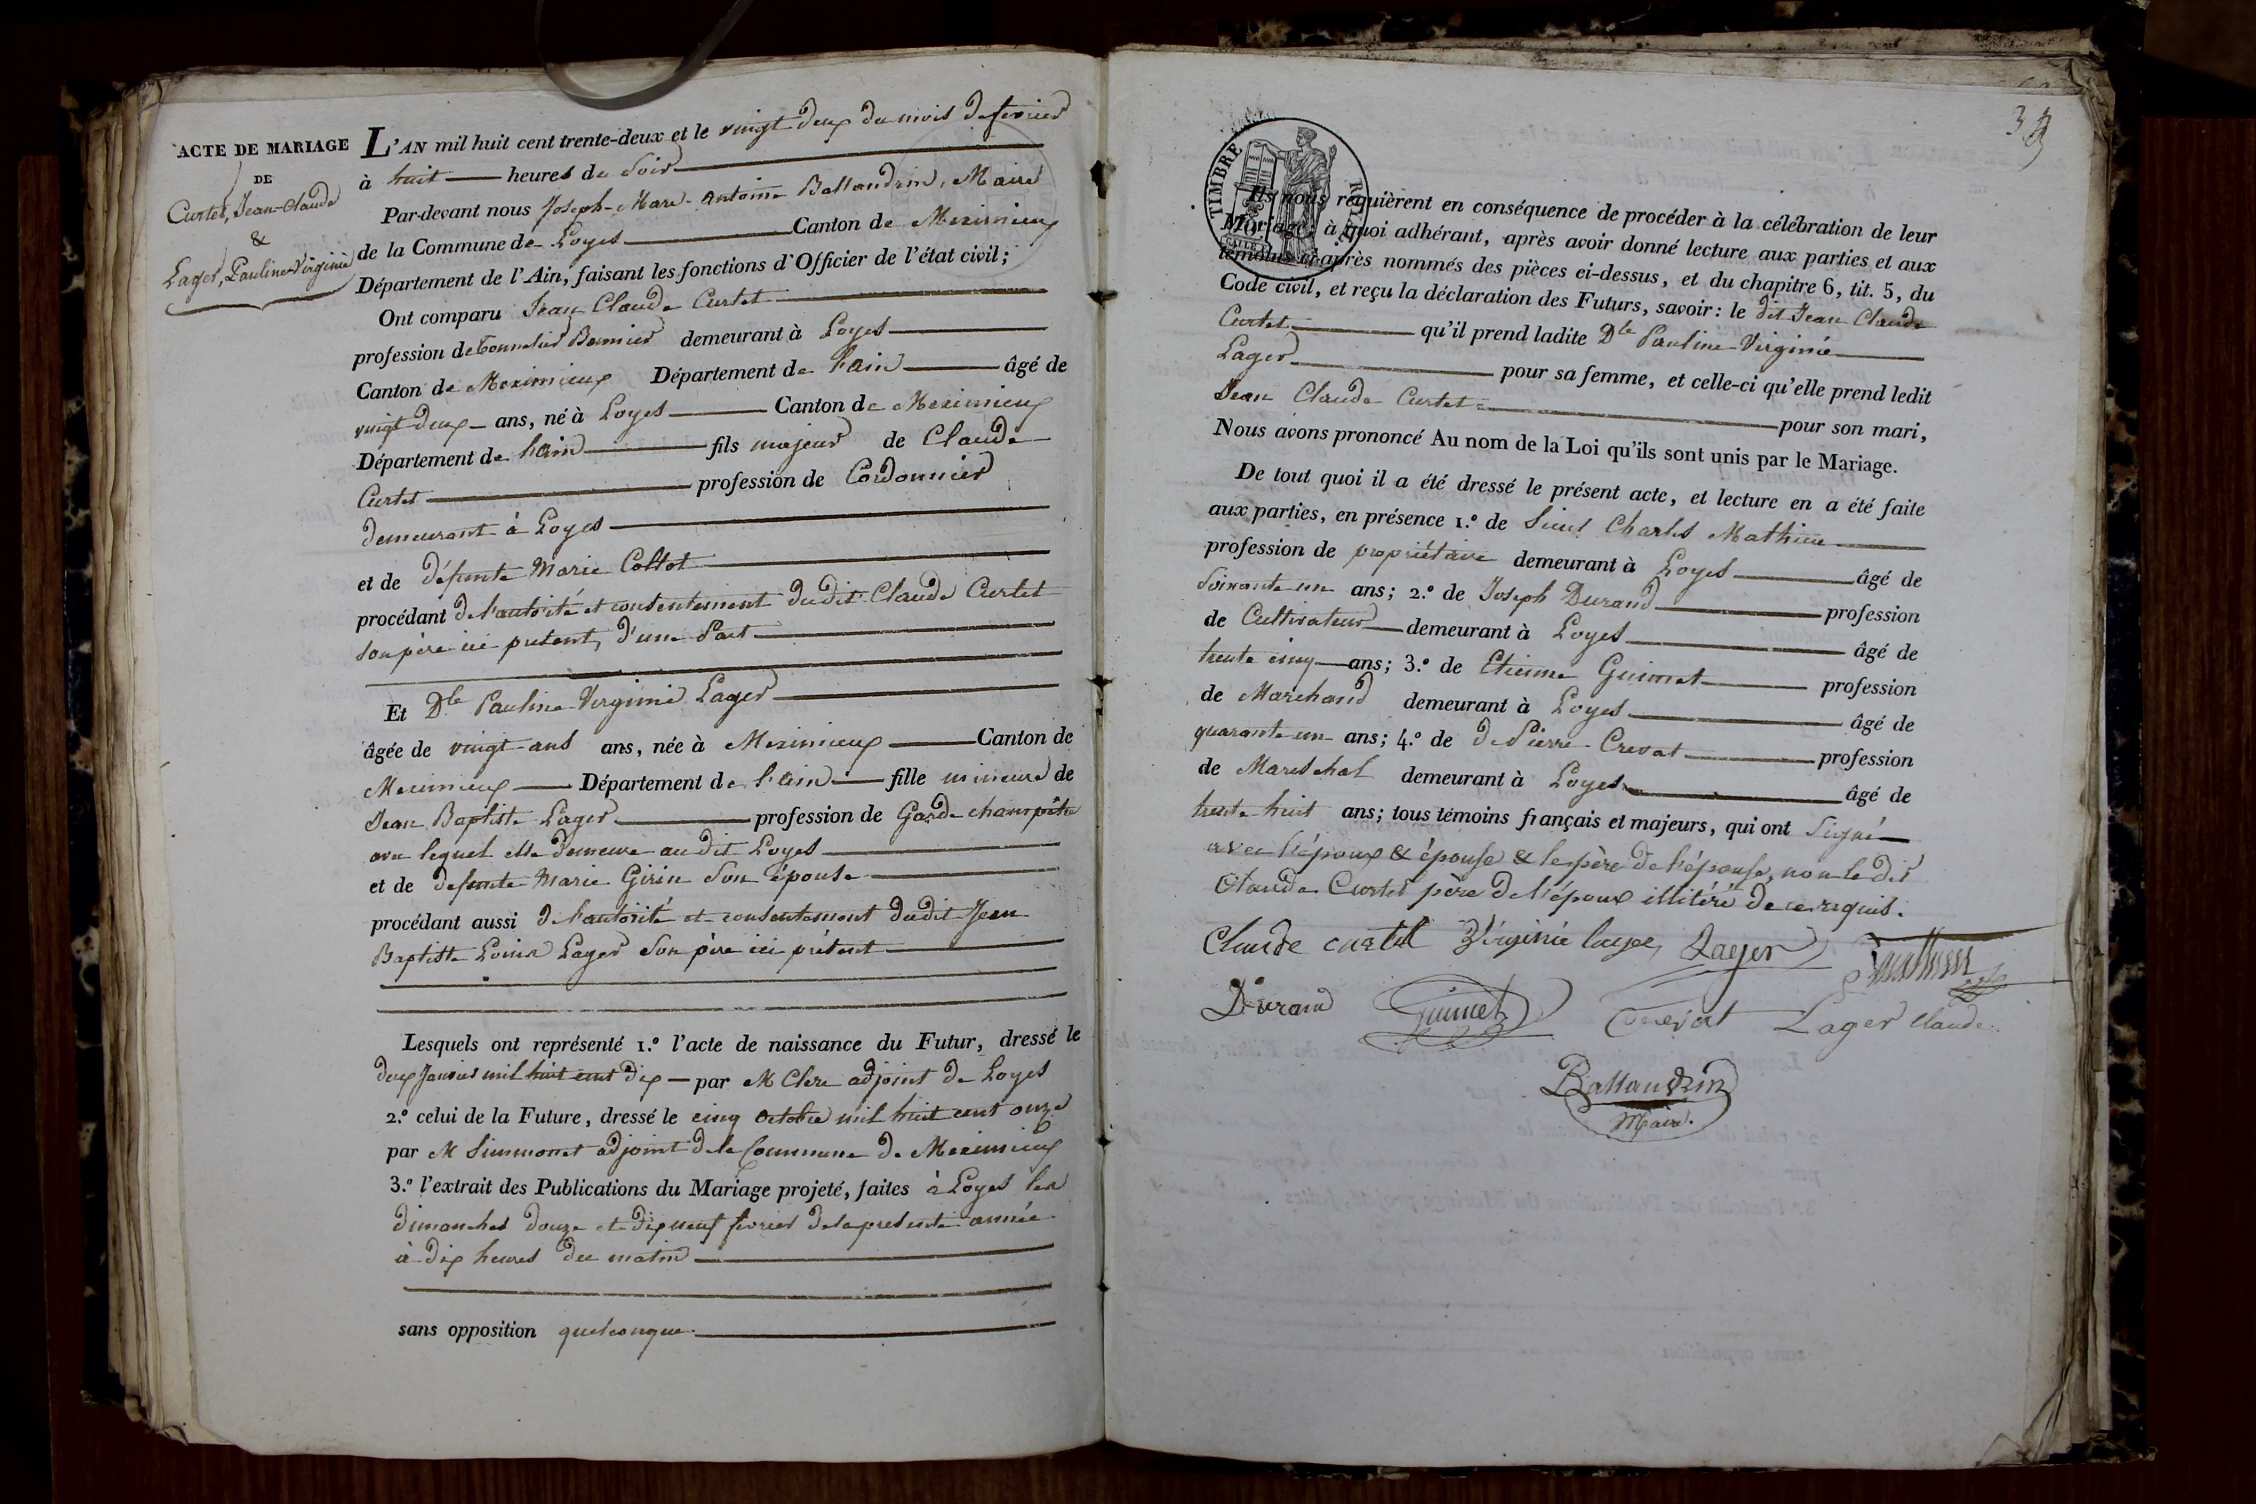 ACTE DE MARIAGE
DE
Curtet, Jean-Claude
&
Lager, Pauline Virginie
L'AN mil huit cent trente-deux et le vingt deux du mois de fevrier
à huit heures du soir
Par-devant nous Joseph-Marc-Antoine Ballandrin, Maire
de la Commune de Loyes Canton de Meximieux
Département de l'Ain, faisant les fonctions d'Officier de l'état civil;
Ont comparu Jean Claude Curtet
profession de Tonnelier demeurant à Loyes
Canton de Meximieux Département de l'ain âgé de
vingt deux ans, né à Loyes Canton de Meximieux
Département de l'ain fils majeur de Claude
Curtet profession de Cordonnier
demeurant à Loyes
et de défunte Marie Collot
procédant de l'autorité et consentement dudit Claude Curtet
son père ici présent, d'une Part
Et Dlle Pauline Virginie Lager
âgée de vingt ans ans, née à Meximieux Canton de
Meximieux Département de l'ain fille mineure de
Jean Baptiste Lager profession de Garde champêtre
avec lequel elle demeure au dit Loyes
et de defunte Marie Girin son épouse
procédant aussi de l'autorité et consentement dudit Jean
Baptiste Louis Lager son père ici présent
Lesquels ont représenté 1.º l'acte de naissance du Futur, dressé le
deux Janvier mil huit cent dix par M Clerc adjoint de Loyes
2.º celui de la Future, dressé le cinq octobre mil huit cent onze
par M Simmonet adjoint de la Commune de Meximieux
3.º l'extrait des Publications du Mariage projeté, faites à Loyes les
dimanches douze et dix neuf fevrier de la presente année
à dix heures du matin
sans opposition quelconque
TIMBRE ROYAL
Ils nous requièrent en conséquence de procéder à la célébration de leur
Mariage; à quoi adhérant, après avoir donné lecture aux parties et aux
témoins ci-après nommés des pièces ci-dessus, et du chapitre 6, tit. 5, du
Code civil, et reçu la déclaration des Futurs, savoir: le dit Jean Claude
Curtet qu'il prend ladite Dlle Pauline Virginie
Lager pour sa femme, et celle-ci qu'elle prend ledit
Jean Claude Curtet pour son mari,
Nous avons prononcé Au nom de la Loi qu'ils sont unis par le Mariage.
De tout quoi il a été dressé le présent acte, et lecture en a été faite
aux parties, en présence 1.º de Sieur Charles Mathieu
profession de propriétaire demeurant à Loyes âgé de
soixante un ans; 2.º de Joseph Durand profession
de Cultivateur demeurant à Loyes âgé de
trente cinq ans; 3.º de Etienne Guimet profession
de Marchand demeurant à Loyes âgé de
quarante un ans; 4.º de de Pierre Crevat profession
de Mareschal demeurant à Loyes âgé de
trente huit ans; tous témoins français et majeurs, qui ont signé
avec l'époux & épouse & le père de l'épouse, non le dit
Claude Curtet père de l'époux illitéré de ce requis.
Claude curtet Virginie lager Lager Mathieu
Durand Guimet Crevat Lager Claude
Ballandrin
Maire.